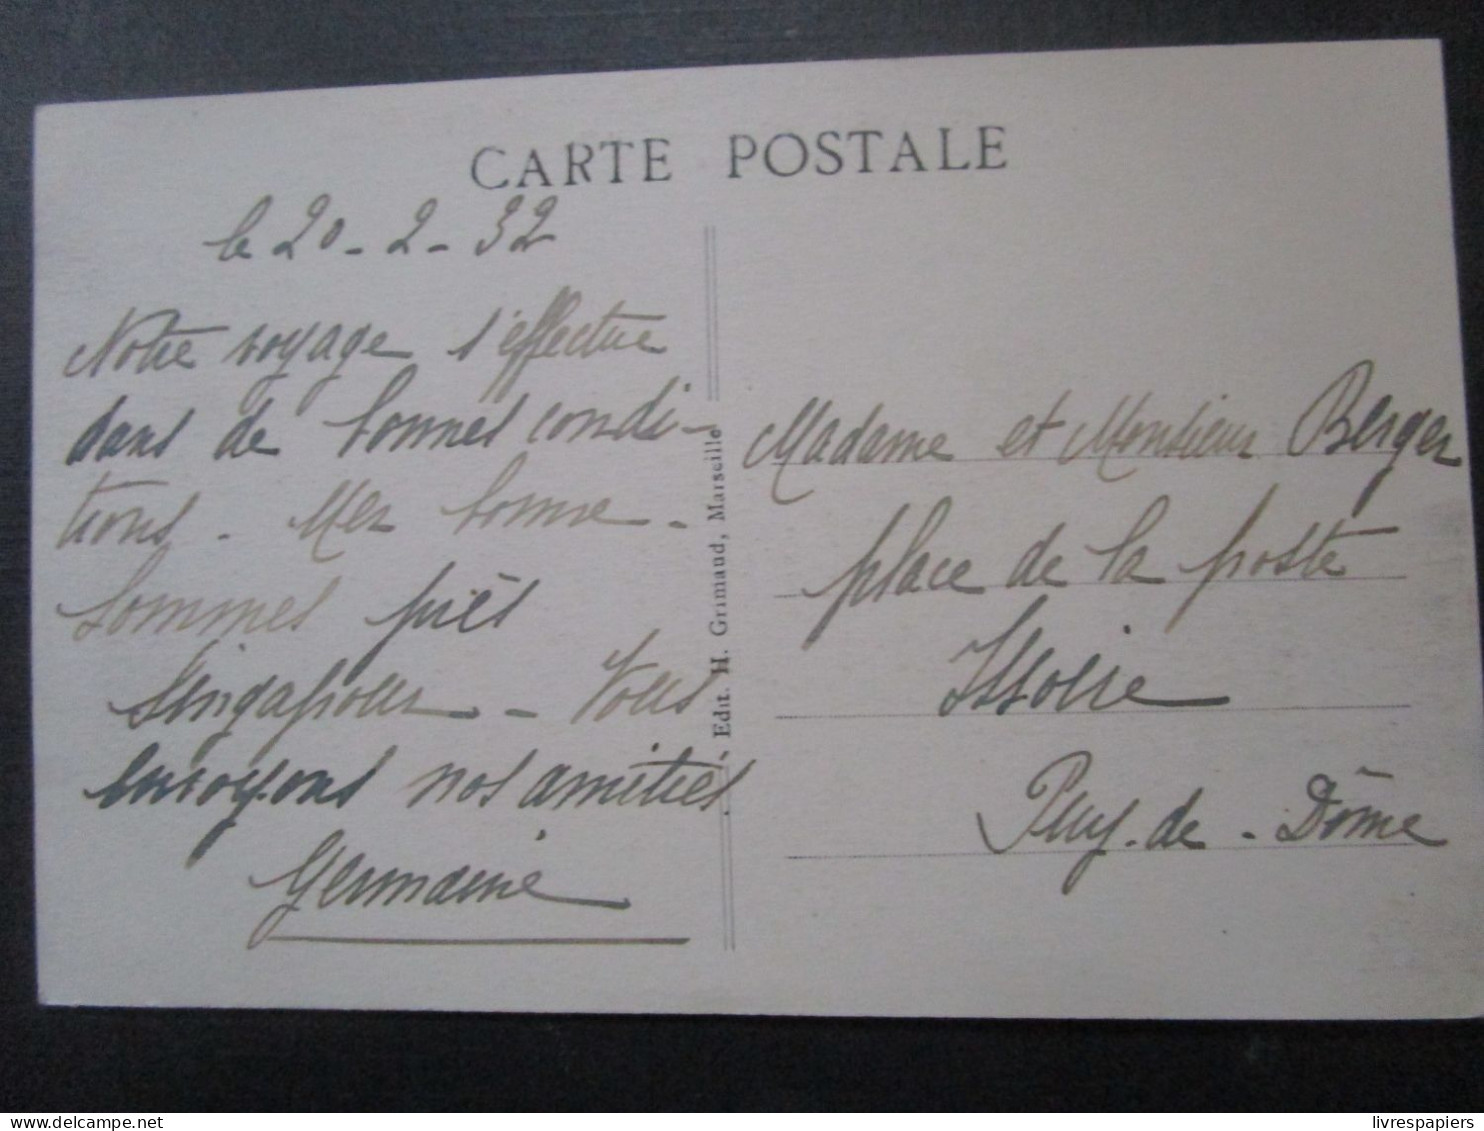 CARTE POSTALE
le 20-2-32
Notre voyage s'effectue
dans de bonnes condi-
tions. Mer bonne -
Sommes près
Singapour - Vous
envoyons nos amitiés.
Germaine
Edit. H. Grimaud, Marseille
Madame et Monsieur Berger
place de la poste
Issoire
Puy-de-Dôme
livrespapiers